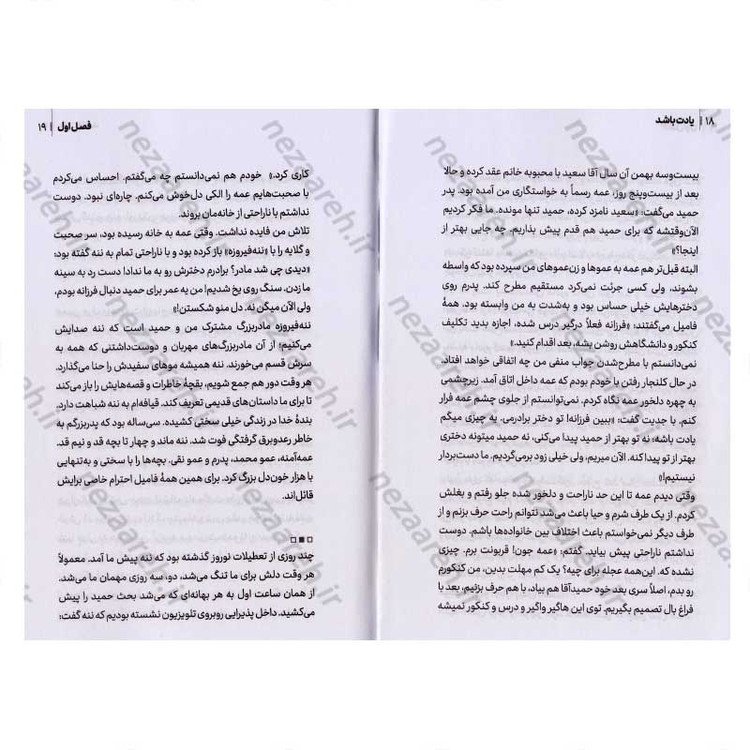 ۱۸ | یادت باشد
بیست‌وسه بهمن آن سال آقا سعید با محبوبه خانم عقد کرده و حالا
بعد از بیست‌وپنج روز، عمه رسماً به خواستگاری من آمده بود. پدر
حمید می‌گفت: «سعید نامزد کرده، حمید تنها مونده. ما فکر کردیم
الآن‌وقتشه که برای حمید هم قدم پیش بذاریم. چه جایی بهتر از
اینجا؟»
البته قبل‌تر هم عمه به عموها و زن‌عموهای من سپرده بود که واسطه
بشوند، ولی کسی جرئت نمی‌کرد مستقیم مطرح کند. پدرم روی
دخترهایش خیلی حساس بود و به‌شدت به من وابسته بود. همهٔ
فامیل می‌گفتند: «فرزانه فعلاً درگیر درس شده، اجازه بدید تکلیف
کنکور و دانشگاهش روشن بشه، بعد اقدام کنید.»
نمی‌دانستم با مطرح‌شدن جواب منفی من چه اتفاقی خواهد افتاد.
در حال کلنجار رفتن با خودم بودم که عمه داخل اتاق آمد. زیرچشمی
به چهره دلخور عمه نگاه کردم. نمی‌توانستم از جلوی چشم عمه فرار
کنم. با جدیت گفت: «ببین فرزانه! تو دختر برادرمی. یه چیزی میگم
یادت باشه؛ نه تو بهتر از حمید پیدا می‌کنی، نه حمید میتونه دختری
بهتر از تو پیدا کنه. الآن میریم، ولی خیلی زود برمی‌گردیم. ما دست‌بردار
نیستیم!»
وقتی دیدم عمه تا این حد ناراحت و دلخور شده جلو رفتم و بغلش
کردم. از یک طرف شرم و حیا باعث می‌شد نتوانم راحت حرف بزنم و از
طرف دیگر نمی‌خواستم باعث اختلاف بین خانواده‌ها باشم. دوست
نداشتم ناراحتی پیش بیاید. گفتم: «عمه جون! قربونت برم. چیزی
نشده که. این‌همه عجله برای چیه؟ یک کم مهلت بدین، من کنکورم
رو بدم، اصلاً سری بعد خود حمیدآقا هم بیاد، با هم حرف بزنیم، بعد با
فراغ بال تصمیم بگیریم. توی این هاگیر واگیر و درس و کنکور نمیشه
فصل اول | ۱۹
کاری کرد.» خودم هم نمی‌دانستم چه می‌گفتم. احساس می‌کردم
با صحبت‌هایم عمه را الکی دل‌خوش می‌کنم. چاره‌ای نبود. دوست
نداشتم با ناراحتی از خانه‌مان بروند.
تلاش من فایده نداشت. وقتی عمه به خانه رسیده بود، سر صحبت
و گلایه را با «ننه‌فیروزه» باز کرده بود و با ناراحتی تمام به ننه گفته بود:
«دیدی چی شد مادر؟ برادرم دخترش رو به ما نداد! دست رد به سینه
ما زدن. سنگ روی یخ شدیم! من یه عمر برای حمید دنبال فرزانه بودم،
ولی الآن میگن نه. دل منو شکستن!»
ننه‌فیروزه مادربزرگ مشترک من و حمید است که ننه صدایش
می‌کنیم؛ از آن مادربزرگ‌های مهربان و دوست‌داشتنی که همه به
سرش قسم می‌خورند. ننه همیشه موهای سفیدش را حنا می‌گذارد.
هر وقت دور هم جمع شویم، بقچهٔ خاطرات و قصه‌هایش را باز می‌کند
تا برای ما داستان‌های قدیمی تعریف کند. قیافه‌ام به ننه شباهت دارد.
بندهٔ خدا در زندگی خیلی سختی کشیده. سی‌ساله بود که پدربزرگم به
خاطر رعدوبرق گرفتگی فوت شد. ننه ماند و چهار تا بچه قد و نیم قد.
عمه‌آمنه، عمو محمد، پدرم و عمو نقی. بچه‌ها را با سختی و به‌تنهایی
با هزار خون‌دل بزرگ کرد. برای همین همهٔ فامیل احترام خاصی برایش
قائل‌اند.
چند روزی از تعطیلات نوروز گذشته بود که ننه پیش ما آمد. معمولاً
هر وقت دلش برای ما تنگ می‌شد، دو، سه روزی مهمان ما می‌شد.
از همان ساعت اول به هر بهانه‌ای که می‌شد بحث حمید را پیش
می‌کشید. داخل پذیرایی روبروی تلویزیون نشسته بودیم که ننه گفت:
nezaareh.ir